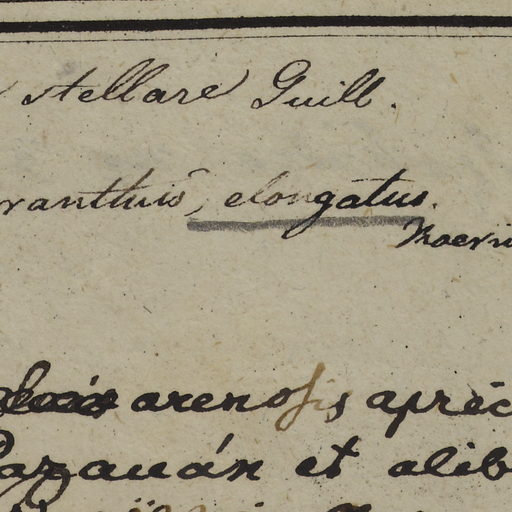 stellare Guill.
ranthus, elongatus.
arenosis apric
Pazauán et alib